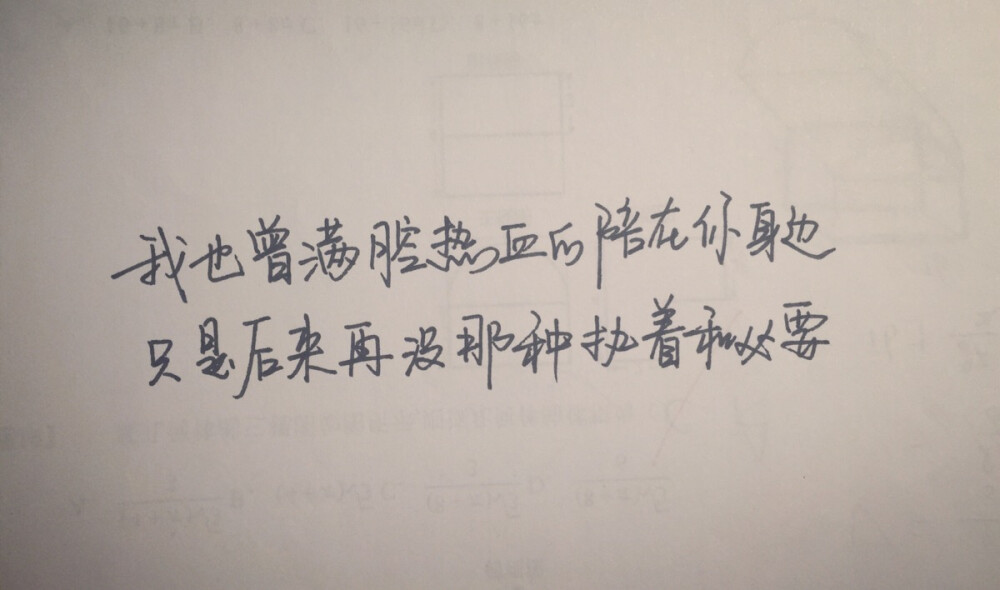 我也曾满腔热血的陪在你身边
只是后来再没那种执着和必要